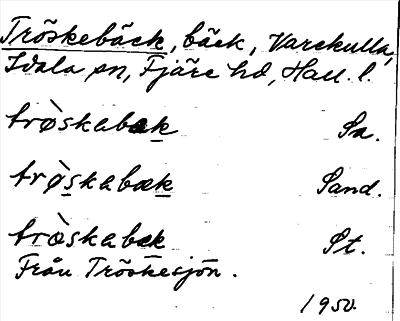 Tröskebäck, bäck, Varekulla,
Idala sn, Fjäre hd, Hall. l.
trø̀skabæk Sa.
trø̀skabæk Sand.
træ̀skabæk St.
Från Trösksjön.
1950.